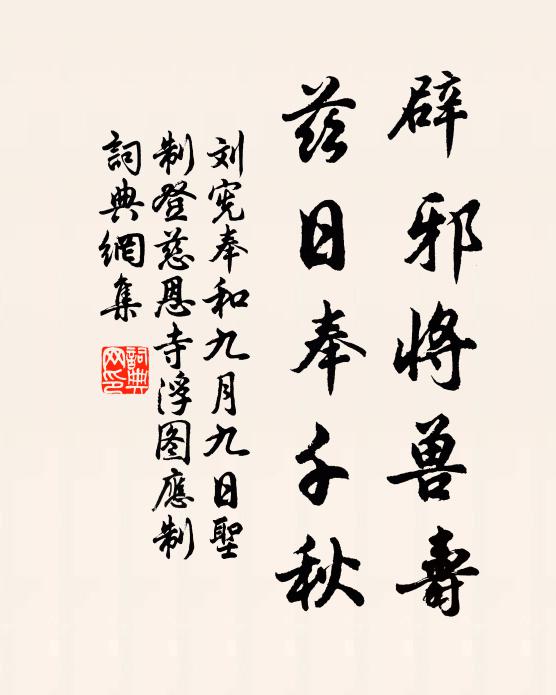 辟邪将兽壽
茲日奉千秋
刘宪奉和九月九日聖
制登慈恩寺浮图應制
詞典網集
詞典网印